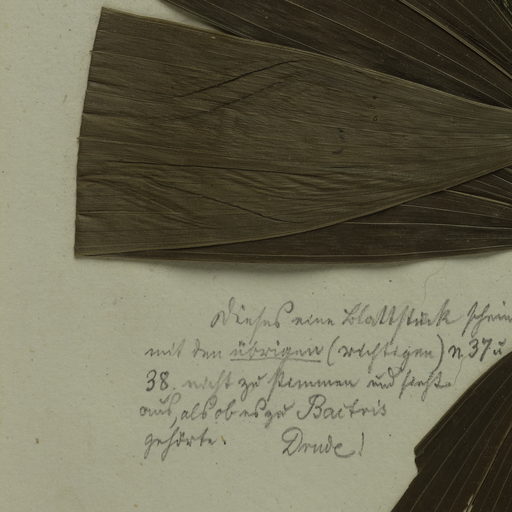 Dieses eine Blattstück schein
mit den übrigen (richtigen) n. 37 u
38. nicht zu stimmen und sieht
aus, als ob es zu Bactris
gehörte. Drude!